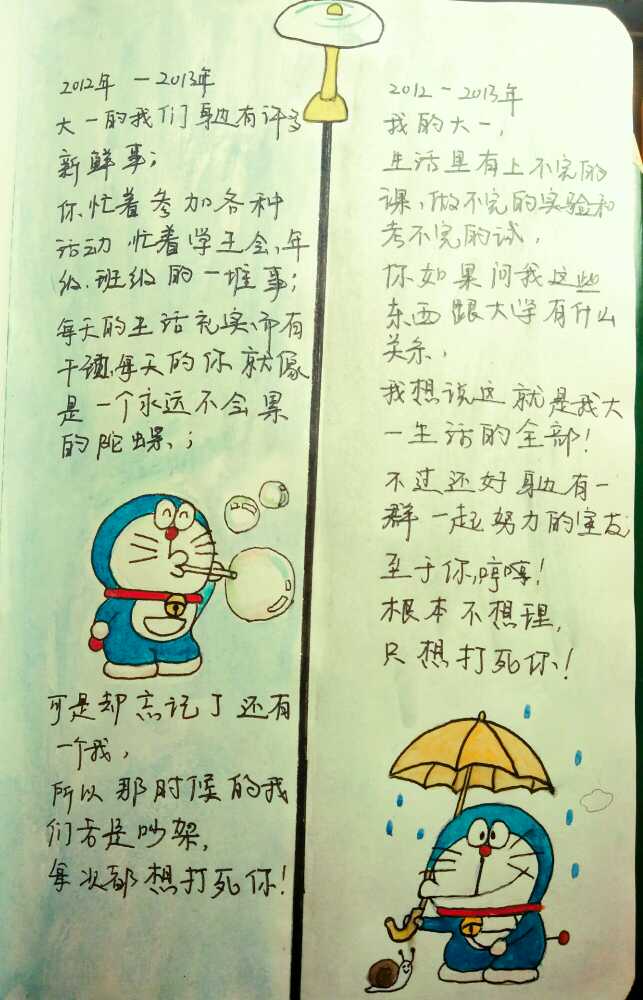 2012年 — 2013年
大一的我们身边有许多
新鲜事;
你忙着参加各种
活动 忙着学生会、年
级、班级的一堆事;
每天的生活充实而有
干劲,每天的你就像
是一个永远不会累
的陀螺、;
可是却忘记了还有
一个我,
所以那时候的我
们老是吵架,
每次都想打死你!
2012 — 2013年
我的大一,
生活里有上不完的
课、做不完的实验和
考不完的试,
你如果问我这些
东西跟大学有什么
关系,
我想说这就是我大
一生活的全部!
不过还好身边有一
群一起努力的室友
至于你,哼哼!
根本不想理,
只想打死你!